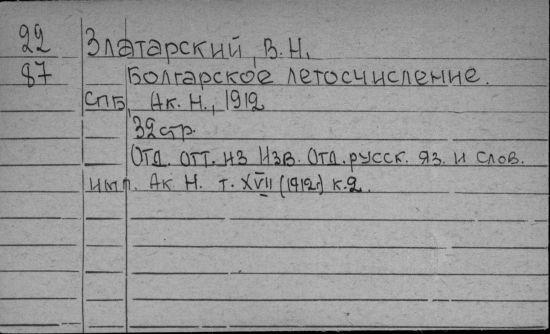 22 Златарский, В.Н.
87 Болгарское летосчисление.
СПБ, Ак. Н., 1912
32 стр.
Отд. отт. из Изв. Отд. русск. яз. и слов.
имп. Ак Н. т. XVII (1912г.) к.2.